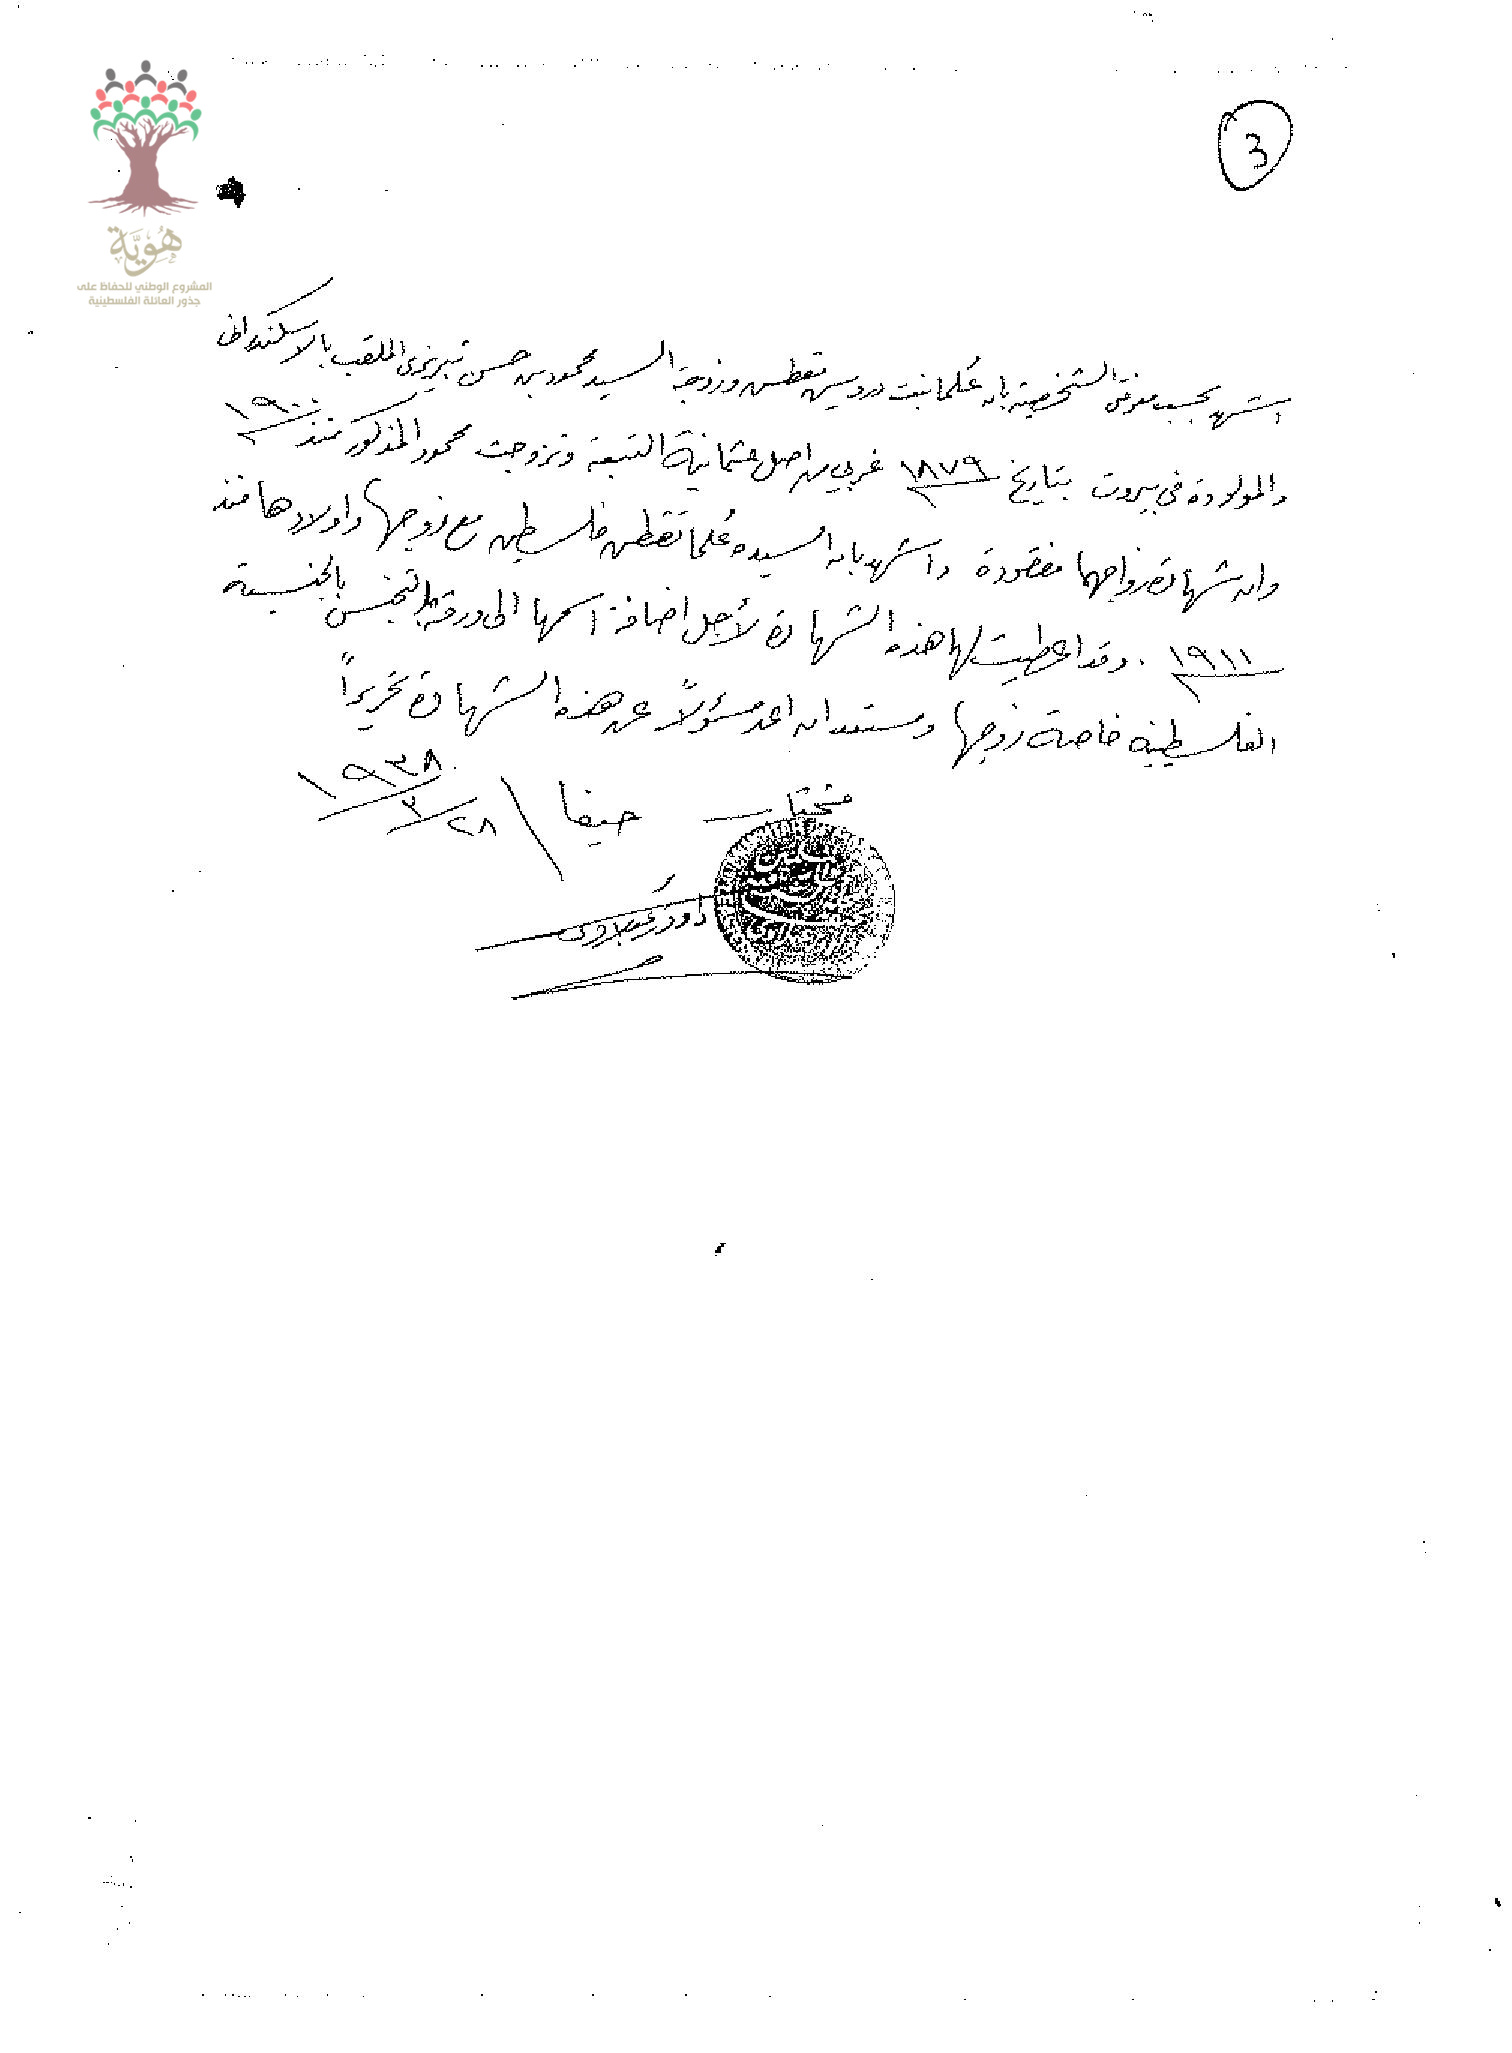 3
هُويَّة
المشروع الوطني للحفاظ على
جذور العائلة الفلسطينية
اشهد بحسب معرفتي الشخصية بان عُلما بنت درويش تقطن وزوجة السيد محمود بن حسن تبريزي الملقب بالاسكندراني
والمولودة في بيروت بتاريخ ١٨٧٩ غربي من اصل عثمانية التبعة وتزوجت محمود المذكور منذ ١٩٠٠
وان شهادة زواجهما مفقودة واشهد بان السيده عُلما تقطن فلسطين مع زوجها واولادها منذ
١٩١١. وقد اعطيت لها هذه الشهادة لأجل اضافة اسمها الى ورقة التجنس بالجنسية
الفلسطينية خاصة زوجها ومستعد ان اعد مسؤولاً عن هذه الشهادة تحريراً
حيفا \ ٢٨/٣/١٩٣٨
مختار
داود